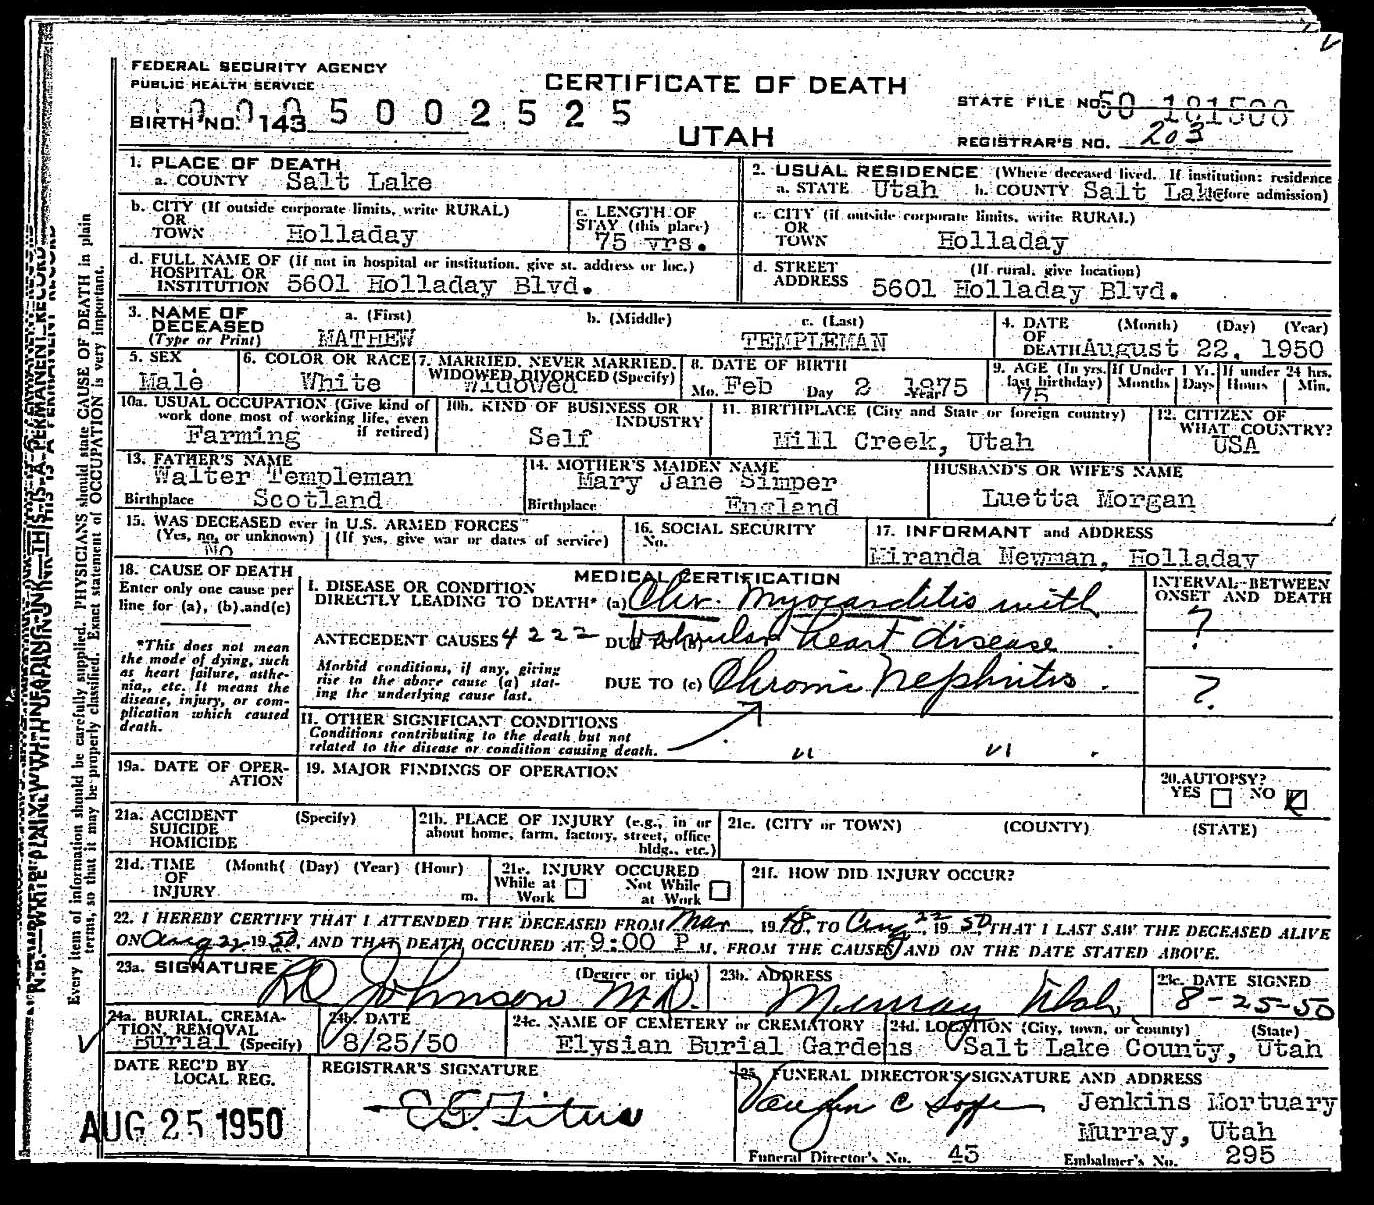 FEDERAL SECURITY AGENCY
PUBLIC HEALTH SERVICE
CERTIFICATE OF DEATH
UTAH
BIRTH NO. 143 0005002525
STATE FILE NO. 50
REGISTRAR'S NO. 203
1. PLACE OF DEATH
a. COUNTY Salt Lake
2. USUAL RESIDENCE (Where deceased lived. If institution: residence before admission)
a. STATE Utah b. COUNTY Salt Lake
b. CITY (If outside corporate limits, write RURAL)
OR
TOWN Holladay
c. LENGTH OF
STAY (this place)
75 yrs.
c. CITY (if outside corporate limits, write RURAL)
OR
TOWN Holladay
d. FULL NAME OF (If not in hospital or institution, give st. address or loc.)
HOSPITAL OR
INSTITUTION 5601 Holladay Blvd.
d. STREET (If rural, give location)
ADDRESS 5601 Holladay Blvd.
3. NAME OF
DECEASED
(Type or Print)
a. (First) b. (Middle) c. (Last)
MATHEW TEMPLEMAN
4. DATE (Month) (Day) (Year)
OF
DEATH August 22, 1950
5. SEX
Male
6. COLOR OR RACE
White
7. MARRIED, NEVER MARRIED,
WIDOWED, DIVORCED (Specify)
Widowed
8. DATE OF BIRTH
Mo. Feb Day 2 Year 1875
9. AGE (In yrs. last birthday) If Under 1 Yr. If under 24 hrs.
75 Months Days Hours Min.
10a. USUAL OCCUPATION (Give kind of
work done most of working life, even
if retired)
Farming
10b. KIND OF BUSINESS OR
INDUSTRY
Self
11. BIRTHPLACE (City and State or foreign country)
Mill Creek, Utah
12. CITIZEN OF
WHAT COUNTRY?
USA
13. FATHER'S NAME
Walter Templeman
Birthplace Scotland
14. MOTHER'S MAIDEN NAME
Mary Jane Simper
Birthplace England
HUSBAND'S OR WIFE'S NAME
Luetta Morgan
15. WAS DECEASED ever in U.S. ARMED FORCES
(Yes, no, or unknown) (If yes, give war or dates of service)
No
16. SOCIAL SECURITY
No.
17. INFORMANT and ADDRESS
Miranda Newman, Holladay
18. CAUSE OF DEATH
Enter only one cause per
line for (a), (b), and (c)
*This does not mean
the mode of dying, such
as heart failure, asthe-
nia, etc. It means the
disease, injury, or com-
plication which caused
death.
MEDICAL CERTIFICATION
I. DISEASE OR CONDITION
DIRECTLY LEADING TO DEATH* (a) Chr. Myocarditis with
ANTECEDENT CAUSES 4222 DUE TO (b) Valvular heart disease
Morbid conditions, if any, giving
rise to the above cause (a) stat-
ing the underlying cause last.
DUE TO (c) Chronic Nephritis.
II. OTHER SIGNIFICANT CONDITIONS
Conditions contributing to the death but not
related to the disease or condition causing death.
" "
INTERVAL BETWEEN
ONSET AND DEATH
?
?
19a. DATE OF OPER-
ATION
19. MAJOR FINDINGS OF OPERATION
20. AUTOPSY?
YES NO
21a. ACCIDENT (Specify)
SUICIDE
HOMICIDE
21b. PLACE OF INJURY (e.g., in or
about home, farm, factory, street, office
bldg., etc.)
21c. (CITY or TOWN) (COUNTY) (STATE)
21d. TIME (Month) (Day) (Year) (Hour)
OF
INJURY m.
21e. INJURY OCCURED
While at Work Not While at Work
21f. HOW DID INJURY OCCUR?
22. I HEREBY CERTIFY THAT I ATTENDED THE DECEASED FROM Mar, 1948, TO Aug 22, 1950 THAT I LAST SAW THE DECEASED ALIVE
ON Aug 22 1950, AND THAT DEATH OCCURED AT 9:00 P M. FROM THE CAUSES AND ON THE DATE STATED ABOVE.
23a. SIGNATURE (Degree or title)
Johnson M.D.
23b. ADDRESS
Murray Utah
23c. DATE SIGNED
8-25-50
24a. BURIAL, CREMA-
TION, REMOVAL
Burial (Specify)
24b. DATE
8/25/50
24c. NAME OF CEMETERY or CREMATORY
Elysian Burial Gardens
24d. LOCATION (City, town, or county) (State)
Salt Lake County, Utah
DATE REC'D BY
LOCAL REG.
AUG 25 1950
REGISTRAR'S SIGNATURE
25. FUNERAL DIRECTOR'S SIGNATURE AND ADDRESS
Vaughn C
Jenkins Mortuary
Murray, Utah
Funeral Director's No. 43 Embalmer's No. 295
N.B.—WRITE PLAINLY WITH UNFADING INK—THIS IS A PERMANENT RECORD
Every item of information should be carefully supplied. PHYSICIANS should state CAUSE OF DEATH in plain
terms, so that it may be properly classified. Exact statement of OCCUPATION is very important.